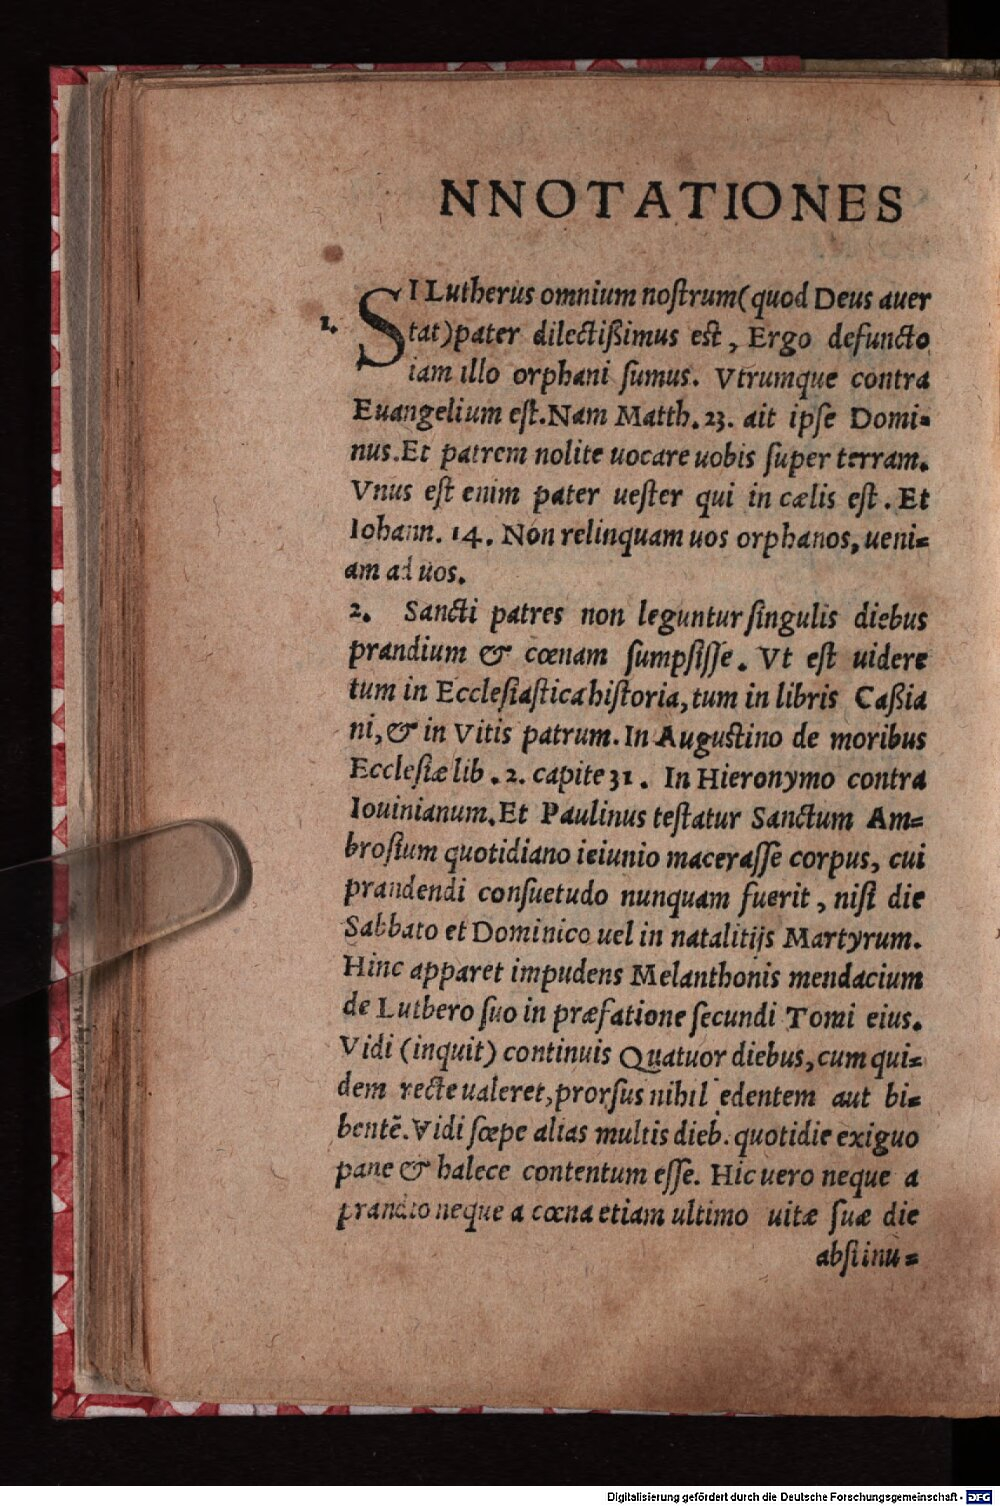 NNOTATIONES
1. SI Lutherus omnium noſtrum (quod Deus auer
tat) pater dilectißimus est, Ergo defuncto
iam illo orphani ſumus. Vtrumque contra
Euangelium eſt. Nam Matth. 23. ait ipſe Domi=
nus. Et patrem nolite uocare uobis ſuper terram.
Vnus eſt enim pater ueſter qui in cælis eſt. Et
Iohann. 14. Non relinquam uos orphanos, ueni=
am ad uos.
2. Sancti patres non leguntur ſingulis diebus
prandium & cœnam ſumpſiſſe. Vt eſt uidere
tum in Eccleſiaſtica hiſtoria, tum in libris Caßia
ni, & in Vitis patrum. In Auguſtino de moribus
Eccleſiæ lib. 2. capite 31. In Hieronymo contra
Iouinianum. Et Paulinus teſtatur Sanctum Am=
broſium quotidiano ieiunio maceraſſe corpus, cui
prandendi conſuetudo nunquam fuerit, niſi die
Sabbato et Dominico uel in natalitijs Martyrum.
Hinc apparet impudens Melanthonis mendacium
de Luthero ſuo in præfatione ſecundi Tomi eius.
Vidi (inquit) continuis Quatuor diebus, cum qui=
dem recte ualeret, prorſus nihil edentem aut bi=
bentē. Vidi ſæpe alias multis dieb. quotidie exiguo
pane & halece contentum eſſe. Hic uero neque a
prandio neque a cœna etiam ultimo uitæ ſuæ die
abſtinu=
Digitalisierung gefördert durch die Deutsche Forschungsgemeinschaft - DFG